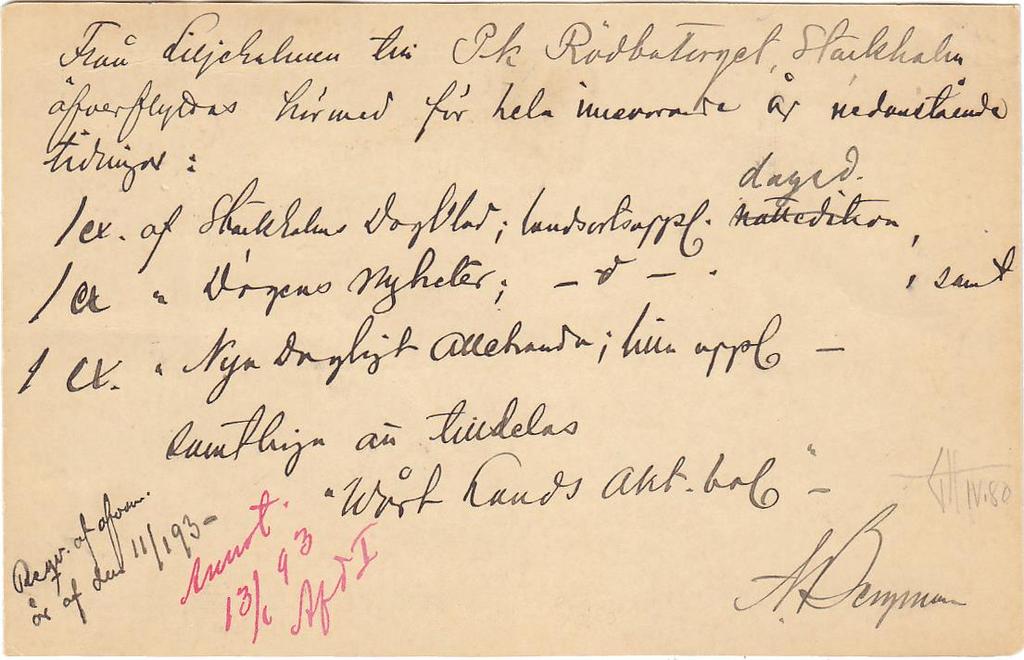 Från Liljeholmen till P.k Rödbotorget, Stockholm
öfverflyttas härmed för hela innevarande år nedanstående
tidningar:
daged.
1 ex. af Stockholms Dagblad; landsortsuppl. nattedition,
1 ex " Dagens Nyheter; — d — . , samt
1 ex. " Nya Dagligt Allehanda; lilla uppl —
samtliga att tilldelas
"Wårt Lands Akt. bol" —
Reqv. af ofvan.
är af den 11/1 93 —
Annot.
13/1 93
Afd I
IV.80
A Bergman